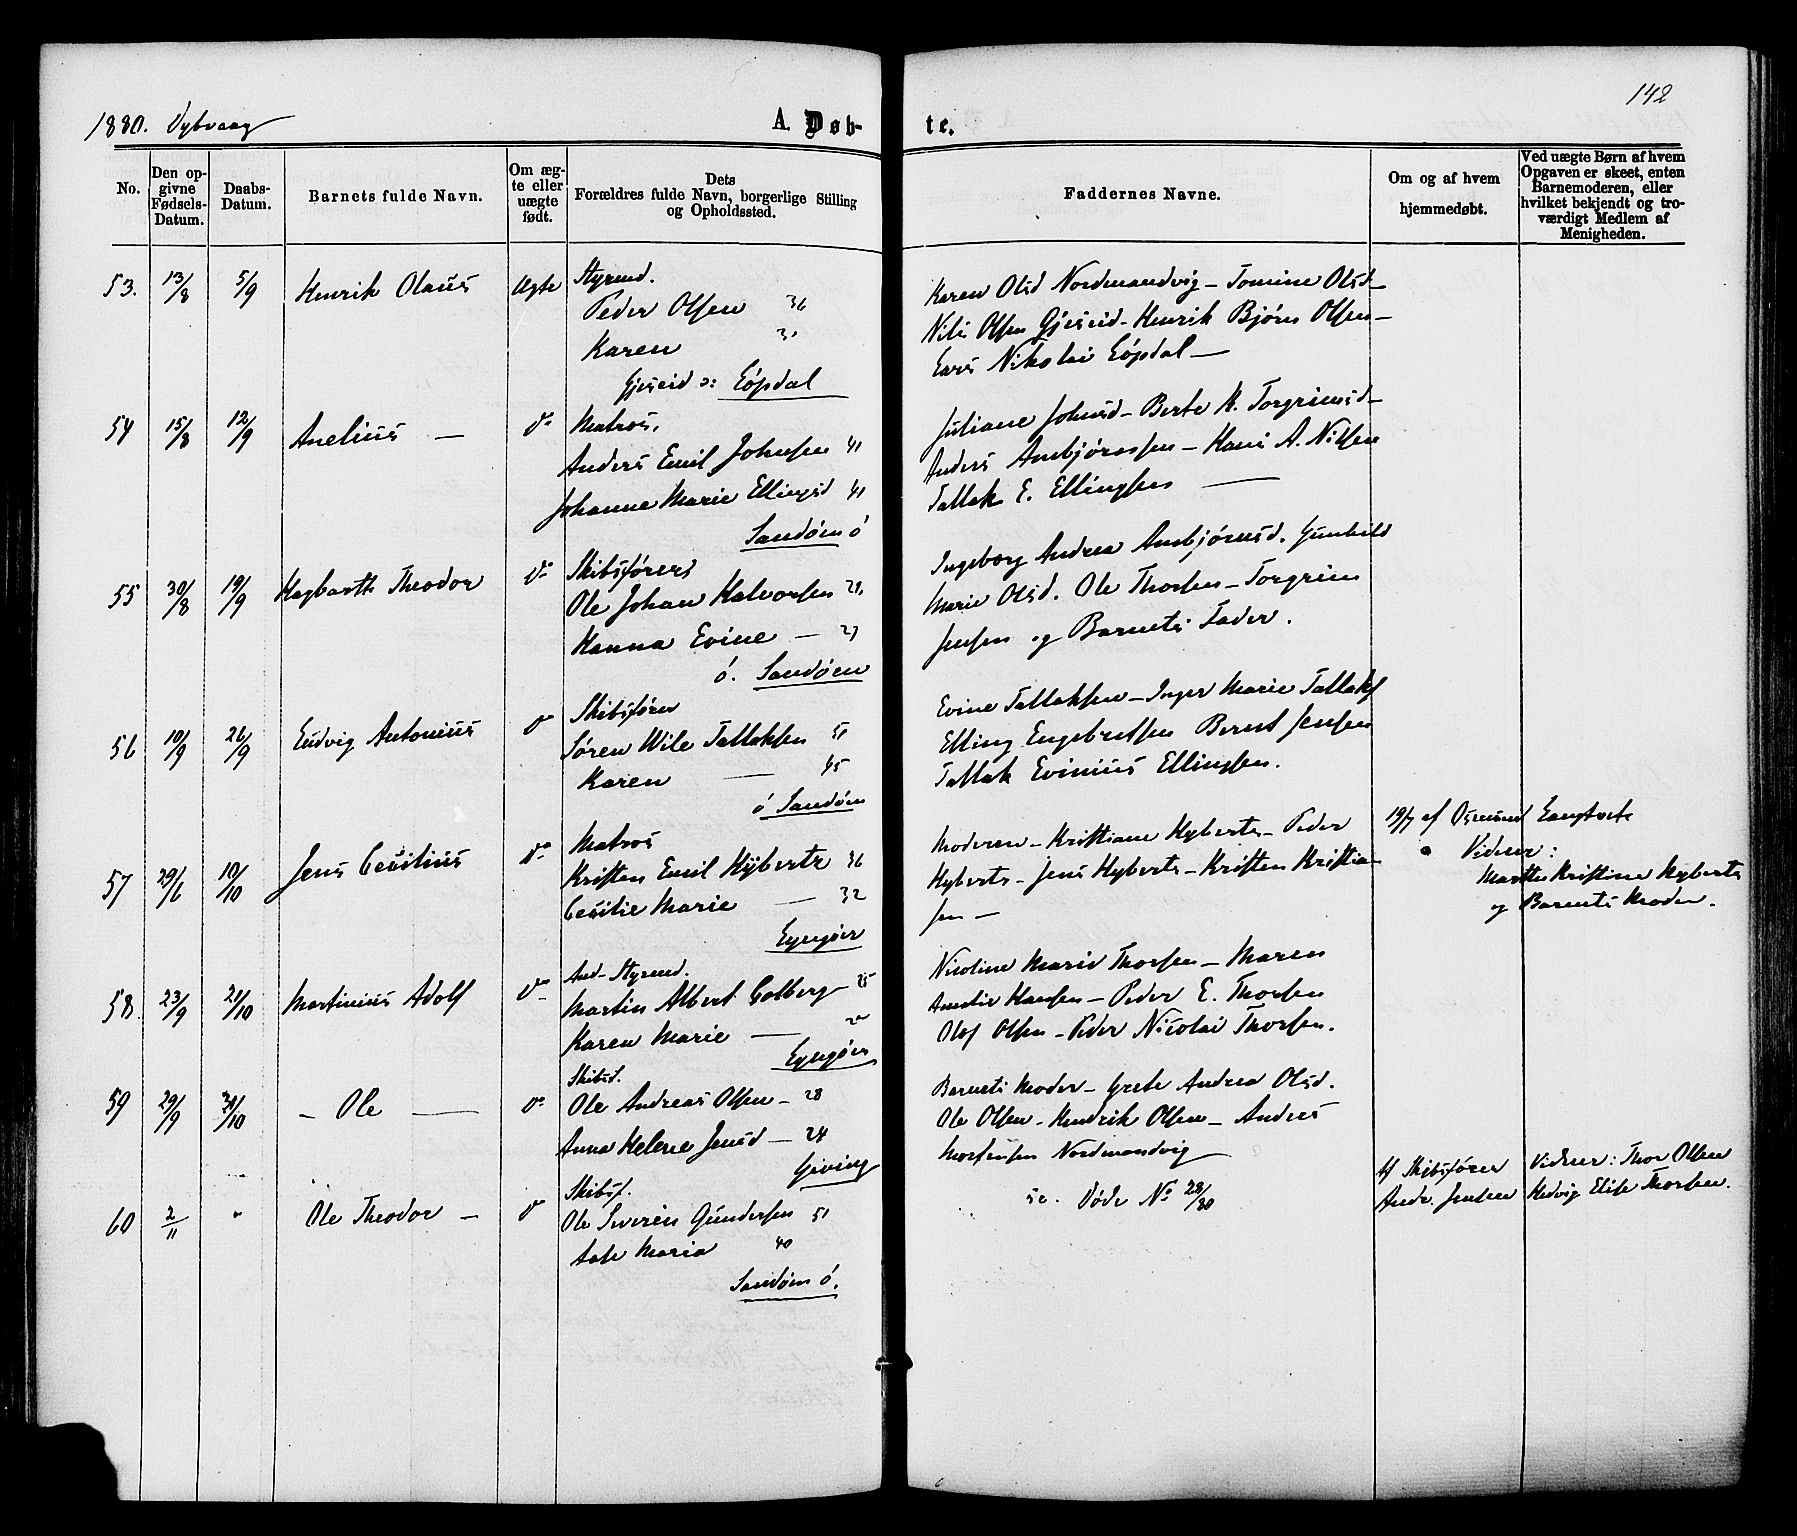 142
1880. Dybvaag A. Døb- te.
No. Den opgivne Fødsels-Datum. Daabs-Datum. Barnets fulde Navn. Om ægte eller uægte født. Dets Forældres fulde Navn, borgerlige Stilling og Opholdssted. Faddernes Navne. Om og af hvem hjemmedøbt. Ved uægte Børn af hvem Opgaven er skeet, enten Barnemoderen, eller hvilket bekjendt og troværdigt Medlem af Menigheden.
53. 13/8 5/9 Henrik Olaus Ægte Styrmd.
Peder Olsen 36
Karen 31
Gjeseid ɔ: Løpdal
Karen Olsd Nordmandvig – Tomine Olsd –
Nils Olsen Gjeseid – Henrik Bjørn Olsen –
Lars Nikolai Løpdal –
54 15/8 12/9 Anelius – do Matros,
Anders Emil Johnsen 41
Johanne Marie Ellingsd 41
Sandøen ó
Juliane Johnsd – Berte K. Torgrimsd –
Anders Ambjørnsen – Hans A. Nilsen
Tallak E. Ellingsen –
55 30/8 19/9 Hagbarth Theodor do Skibsfører
Ole Johan Halvorsen 28
Hanna Evine – 27
ó. Sandøen
Ingeborg Andrea Ambjørnsd. Gunhild
Marie Olsd. Ole Thorsen – Torgrim
Jensen og Barnets Fader.
56 10/9 26/9 Ludvig Antonius do Skibsfører
Søren Wile Tallaksen 51
Karen – 45
ó Sandøen
Evine Tallaksen – Inger Marie Tallaks
Elling Engebretsen Bernt Jensen
Tallak Evinius Ellingsen.
57 29/6 10/10 Jens Cecilius do Matros
Kristen Emil Hyberts 36
Cecilie Marie – 32
Lyngør
Moderen – Kristiane Hyberts – Peder
Hyberts – Jens Hyberts – Kristen Kristian-
sen –
19/7 af Osmund Langtvet
Vidner:
Marthe Kristine Hyberts
og Barnets Moder.
58. 23/9 21/10 Martinius Adolf do And. Styrmd.
Martin Albert Colberg 25
Karen Marie –
Lyngør
Nicoline Marie Thorsen – Maren
Amalie Hansen – Peder E. Thorsen
Olof Olsen – Peder Nicolai Thorsen.
59 29/9 31/10 – Ole – do Skibsf.
Ole Andreas Olsen – 28
Anna Helene Jensd – 24
Giving
Barnets Moder – Grete Andrea Olsd.
Ole Olsen – Hendrik Olsen – Anders
Mortensen Nordmandvig
60 2/11 " Ole Theodor – do Skibsf.
Ole Severin Gundersen 51
Aase Maria 40
Sandøen ó.
se. Døde No 28/80
Af Skibsfører
Andr. Jensen
Vidner: Thor Olsen
Hedvig Elise Thorsen.